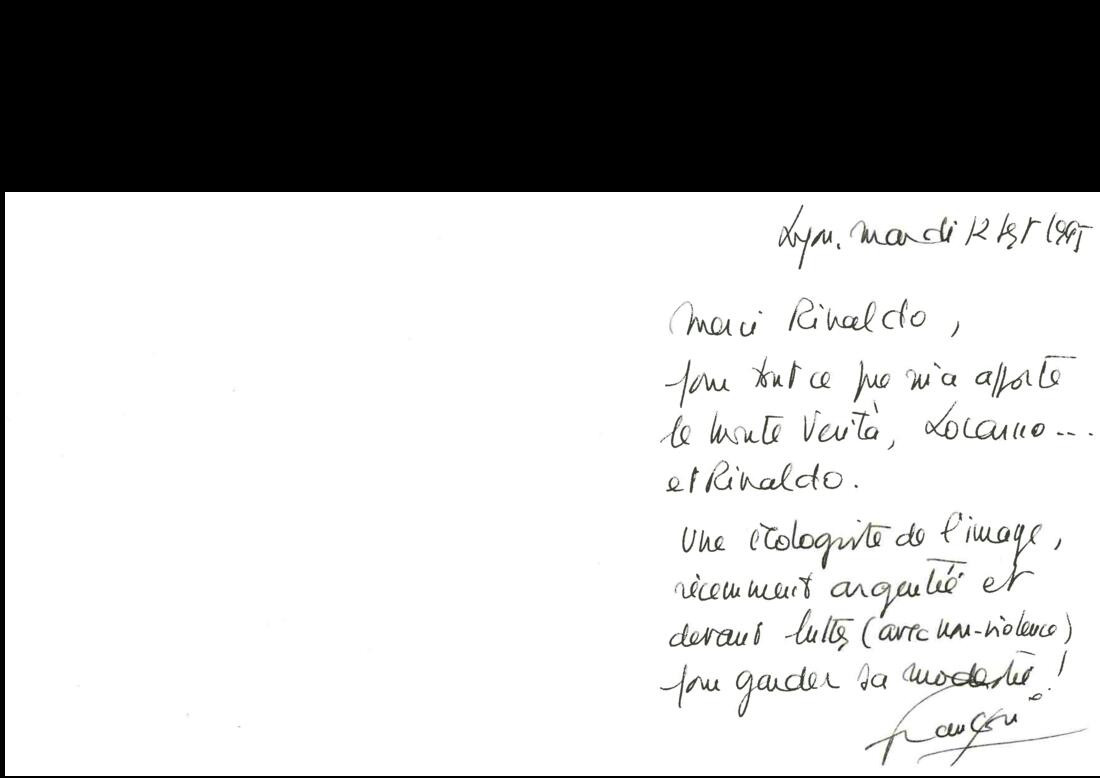 Lyon, mardi 12 sept 1995
Merci Rinaldo,
pour tout ce que m'a apporté
le Monte Verità, Locarno...
et Rinaldo.
Une écologiste de l'image,
récemment argentée et
devant lutter (avec non-violence)
pour garder sa modestie !